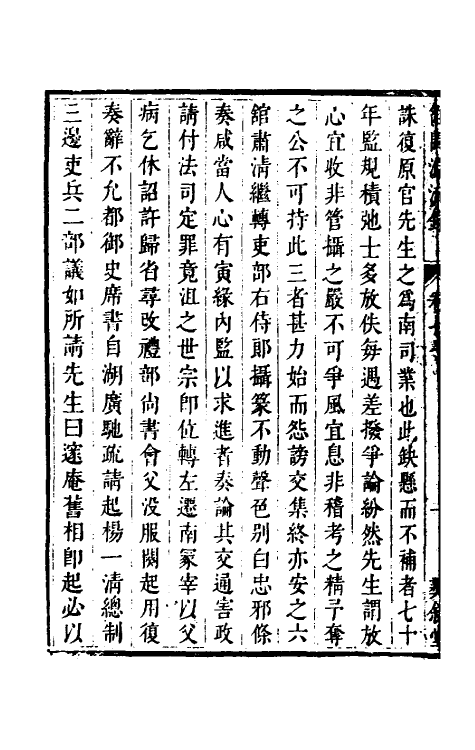 誅復原官先生之為南司業也此缺懸而不補者七十
年監規積弛士多放佚每遇差撥爭論紛然先生謂放
心宜收非管攝之嚴不可爭風宜息非稽考之精予奪
之公不可持此三者甚力始而怨謗交集終亦安之六
舘肅清繼轉吏部右侍郎攝篆不動聲色別白忠邪條
奏咸當人心有寅緣內監以求進者奏論其交通害政
請付法司定罪竟沮之世宗即位轉左遷南冢宰以父
病乞休詔許歸省尋改禮部尚書會父没服闋起用復
奏辭不允都御史席書自湖廣馳疏請起楊一清總制
三邊吏兵二部議如所請先生曰邃庵舊相即起必以